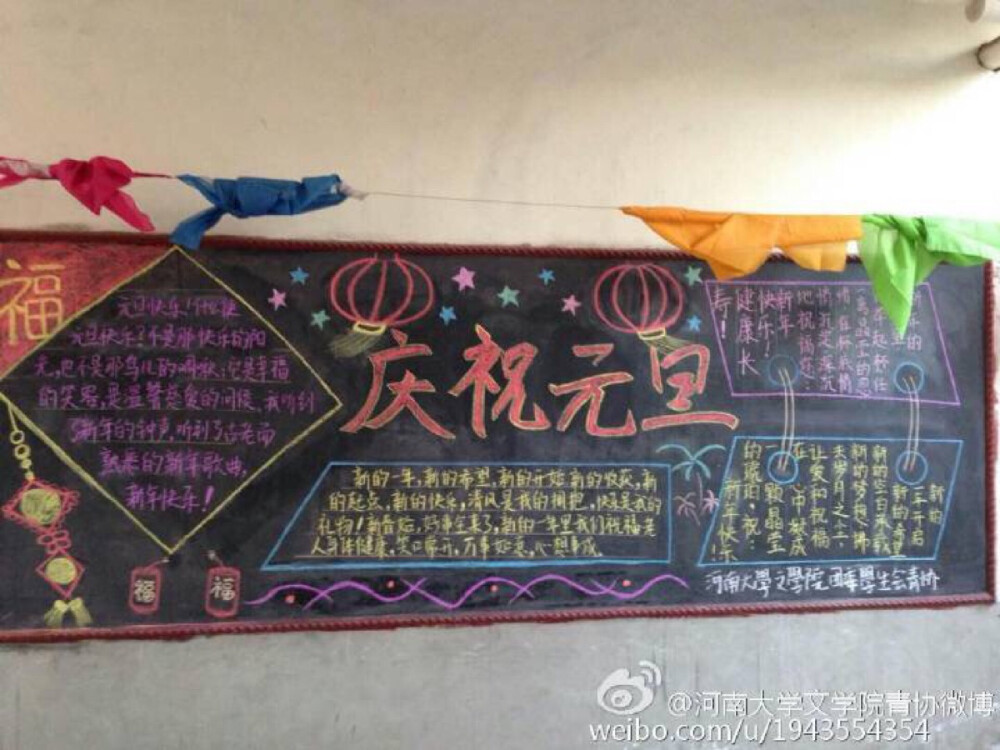 福
元旦快乐!
元旦快乐!不是那快乐的阳
光,也不是那鸟儿的
的笑容,是温馨慈爱的问候,我听到
新年的钟声,听到了古老而
熟悉的新年歌曲,
新年快乐!
福
福
庆祝元旦
新的一年,新的希望,新的开始 新的收获,新
的起点,新的快乐,清风是我的拥抱,快乐是我的
礼物!新春始,好事全来了,新的一年里我们祝福老
人身体健康,笑口常开,万事如意,心想事成。
情谊深沉
地祝福你:
新年
快乐!
健康长
寿!
新的
一年开启
新的希望
新的空白承载
新的梦想,拂
去岁月之尘
让爱和祝福
在
一颗晶莹
的琥珀,祝:
新年快乐!
河南大學文學院團委學生会青协
@河南大学文学院青协微博
weibo.com/u/1943554354